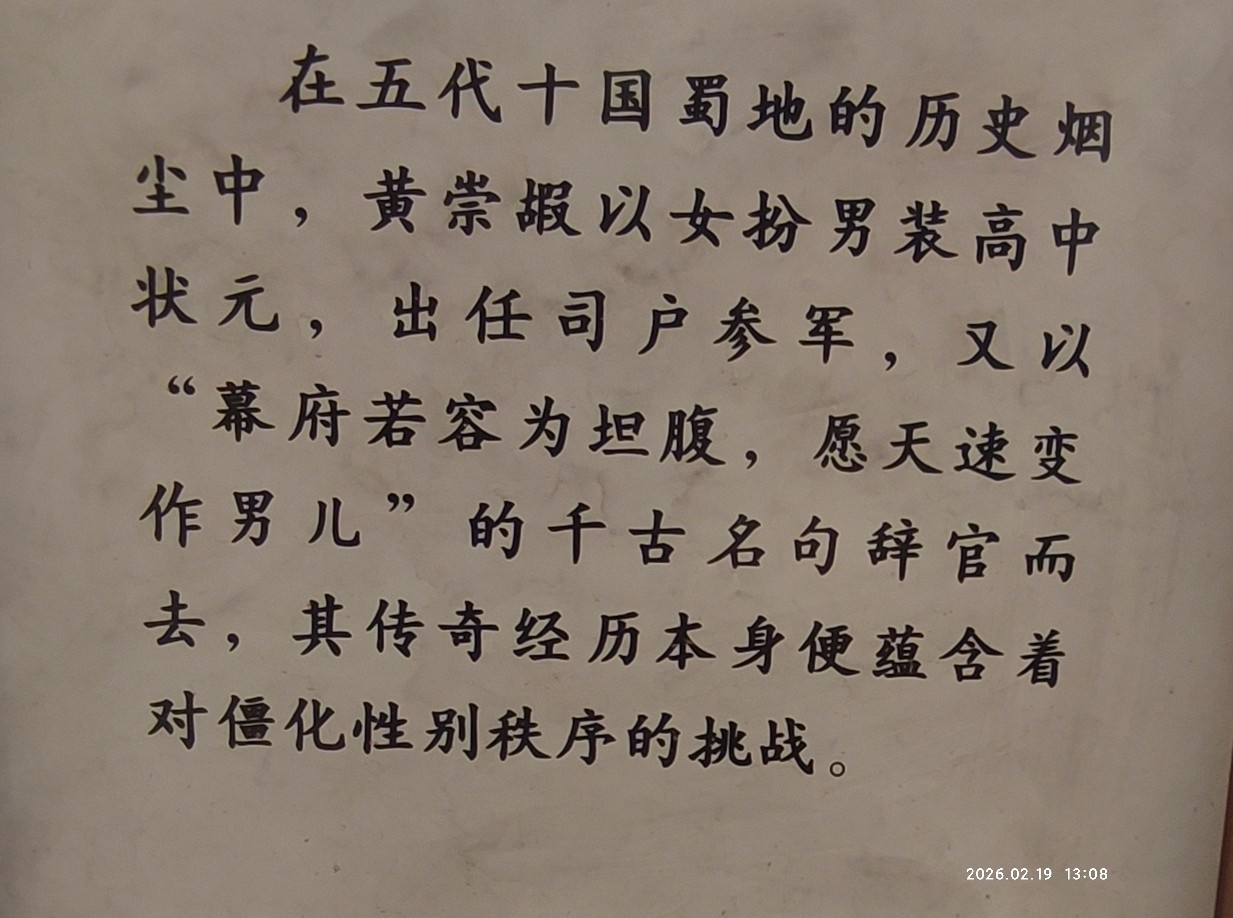 在五代十国蜀地的历史烟
尘中，黄崇嘏以女扮男装高中
状元，出任司户参军，又以
“幕府若容为坦腹，愿天速变
作男儿”的千古名句辞官而
去，其传奇经历本身便蕴含着
对僵化性别秩序的挑战。
2026.02.19 13:08